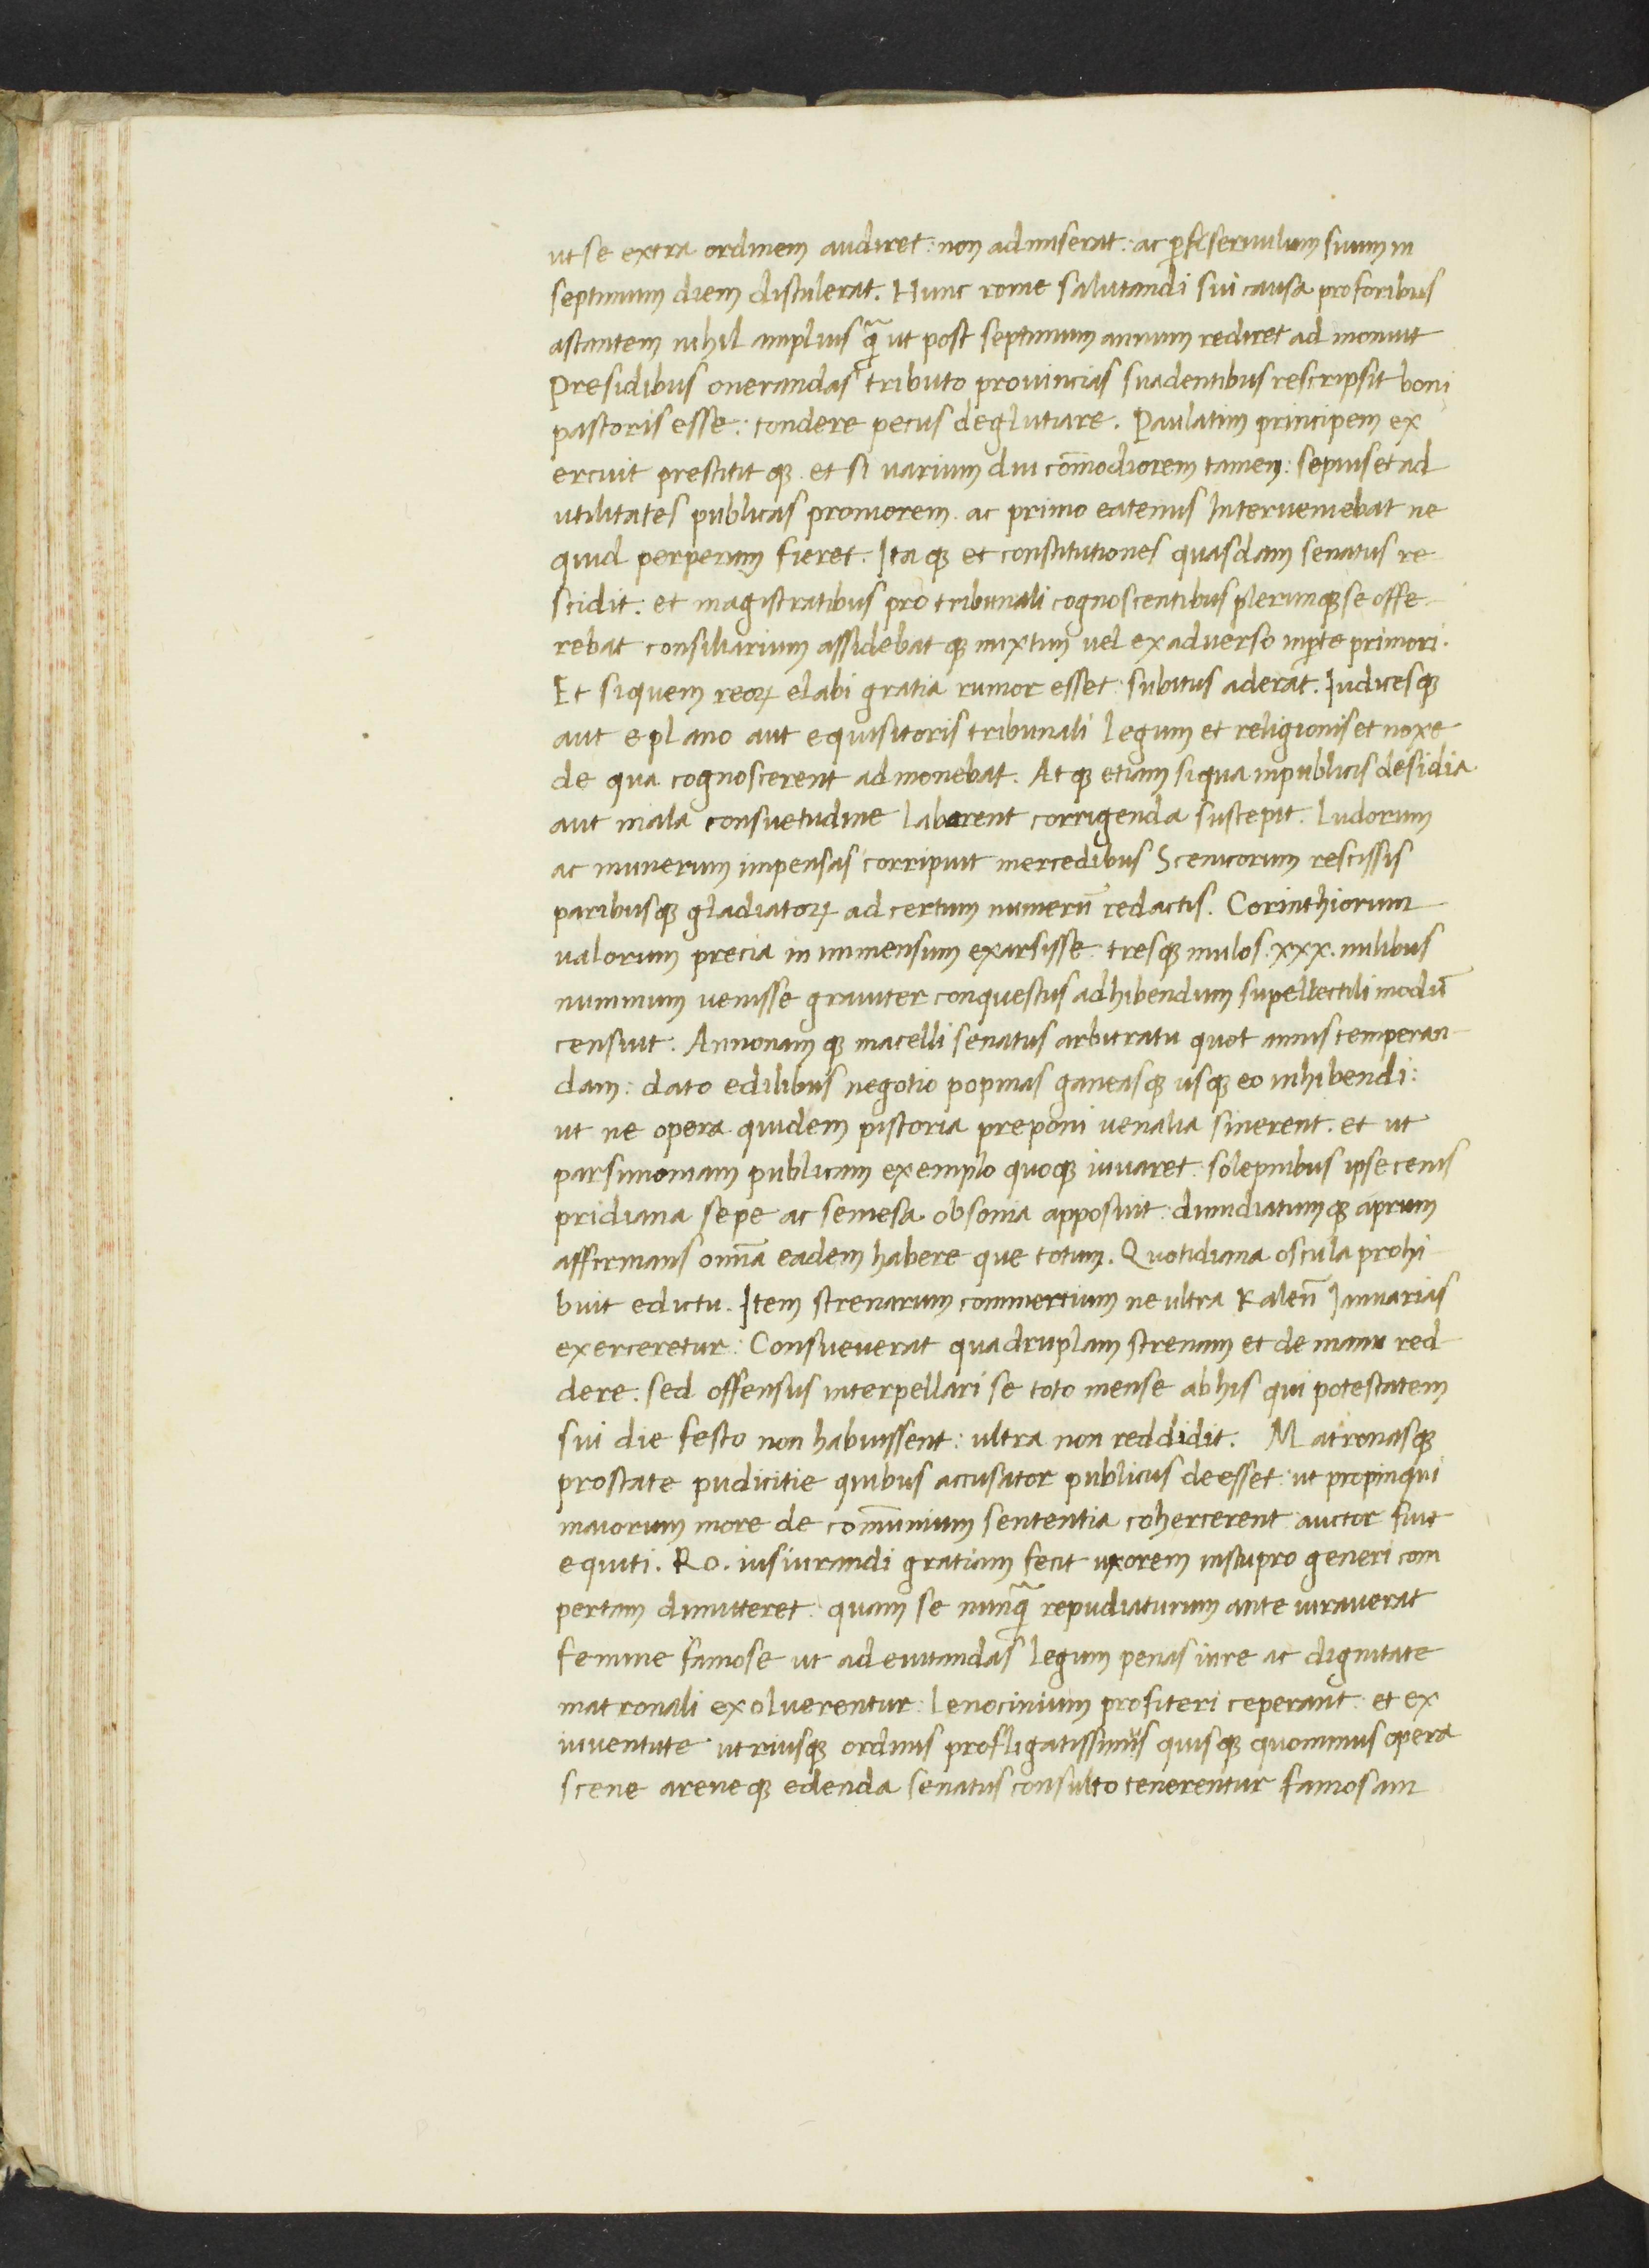 ut se extra ordinem audiret: non admiserat: ac per servulum suum in
septimum diem distulerat. Hunc rome salutandi sui causa proforibus
astantem nihil amplius q̃ ut post septimum annum rediret ad monuit
Presidibus onerandas tributo provincias suadentibus rescripsit boni
pastoris esse: tondere pecus deglutiare. Paulatim principem ex
ercuit prestitit qȝ. et si varium diu com̄odiorem tamen: sepius et ad
utilitates publicas proniorem. ac primo eatenus Interveniebat ne
quid perperam fieret. Ita qȝ et constitutiones quasdam senatus re
scidit: et magistratibus pro tribunali cognoscentibus plerumqȝ se offe
rebat consiliarium assidebat qȝ mixtim vel exadverso inꝑte primori.
Et siquem reoꝝ elabi gratia rumor esset: subitus aderat. Iudicesqȝ
aut e plano aut equisitoris tribunali legum et religionis et noxe
de qua cognoscerent ad monebat. Atqȝ etiam siqua inpublicis desidia
aut mala consuetudine labarent corrigenda suscepit. Ludorum
ac munerum impensas corripuit mercedibus Scenicorum rescissis
paribusqȝ gladiatoꝝ ad certum numerū redactis. Corinthiorum
valorum precia in immensum exarsisse: tresqȝ mulos .xxx. milibus
nummum venisse graviter conquestus adhibendum supellectili modū
censuit: Annonam qȝ macelli senatus arbitratu quot annis temperan
dam: dato edilibus negotio popinas ganeasqȝ usqȝ eo inhibendi:
ut ne opera quidem pistoria preponi venalia sinerent. et ut
parsimoniam publicam exemplo quoqȝ iuvaret: solepnibus ipse cenis
pridiana sepe ac semesa obsonia apposuit: dimidiatumqȝ aprum
affirmans om̄ia eadem habere que totum. Quotidiana oscula prohi
buit edictu. Item strenarum commertium ne ultra Kalen̄ Ianuarias
exerceretur: Consueverat quadruplam strenam et de manu red
dere: sed offensus interpellari se toto mense abhis qui potestatem
sui die festo non habuissent: ultra non reddidit. Matronasqȝ
prostate pudicitie quibus accusator publicus deesset: ut propinqui
maiorum more de com̄unium sententia cohercerent auctor fuit
equiti. Ro. iusiurandi gratiam fecit uxorem instupro generi com
pertam dimitteret: quam se nunq̃ repudiaturum ante iuraverat
femine famose ut ad evitandas legum penas iure ac dignitate
matronali exolverentur: lenocinium profiteri ceperant: et ex
iuventute utriusqȝ ordinis profligatissimus quisqȝ quominus opera
scene areneqȝ edenda senatus consulto tenerentur famosam